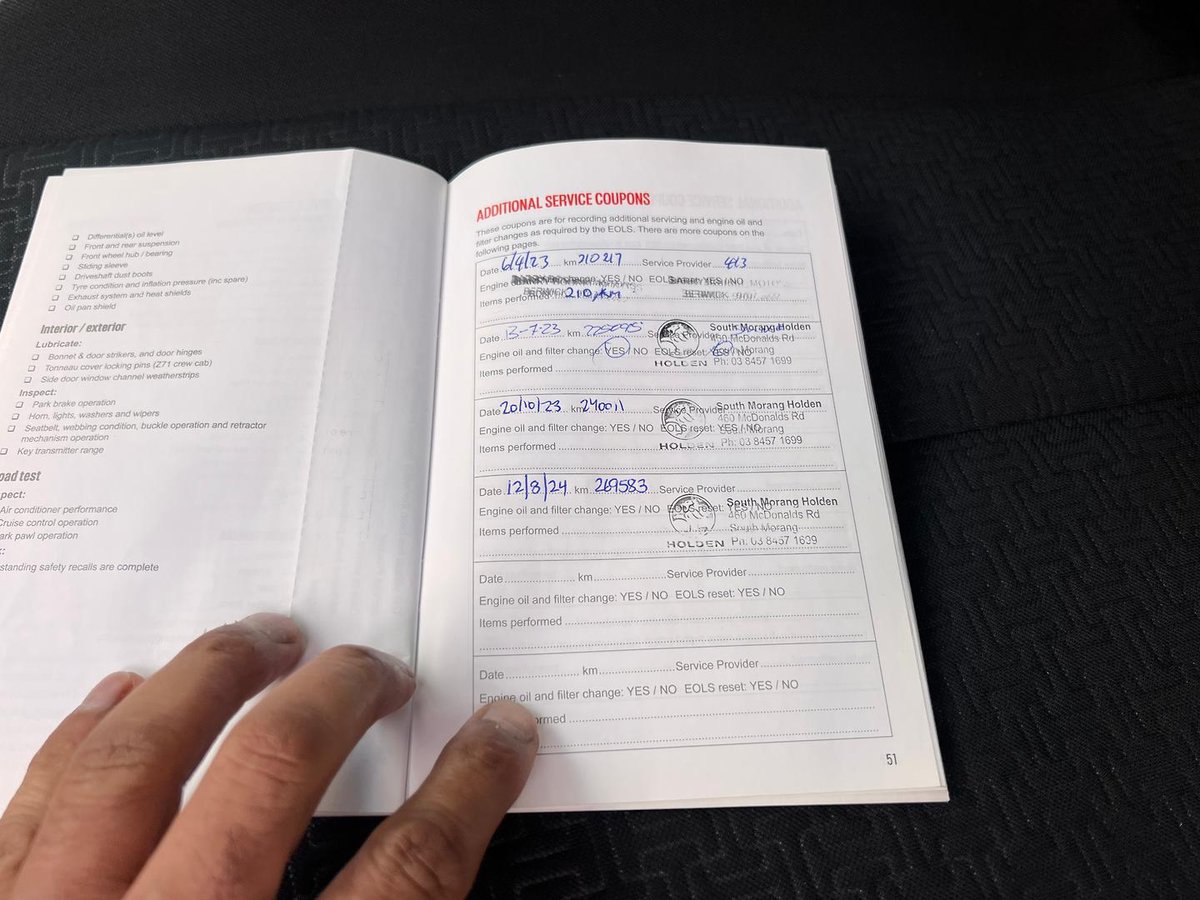 ❏ Differential(s) oil level
❏ Front and rear suspension
❏ Front wheel hub / bearing
❏ Sliding sleeve
❏ Driveshaft dust boots
❏ Tyre condition and inflation pressure (inc spare)
❏ Exhaust system and heat shields
❏ Oil pan shield
Interior / exterior
Lubricate:
❏ Bonnet & door strikers, and door hinges
❏ Tonneau cover locking pins (Z71 crew cab)
❏ Side door window channel weatherstrips
Inspect:
❏ Park brake operation
❏ Horn, lights, washers and wipers
❏ Seatbelt, webbing condition, buckle operation and retractor
mechanism operation
❏ Key transmitter range
oad test
pect:
Air conditioner performance
Cruise control operation
ark pawl operation
standing safety recalls are complete
ADDITIONAL SERVICE COUPONS
These coupons are for recording additional servicing and engine oil and
filter changes as required by the EOLS. There are more coupons on the
following pages.
Date 6/4/23 km 210217 Service Provider
Engine change: YES / NO EOLS YES / NO
BERWICK BERWICK
Items performed 210,
Date 13-7-23 km 225095 Service Provider South Morang Holden
450 McDonalds Rd
Engine oil and filter change: YES / NO EOLS reset: YES / NO South Morang
Items performed HOLDEN Ph: 03 8457 1699
Date 20/10/23 km 240011 Service Provider South Morang Holden
460 McDonalds Rd
Engine oil and filter change: YES / NO EOLS reset: YES / NO South Morang
Items performed HOLDEN Ph: 03 8457 1699
Date 12/8/24 km 269583 Service Provider
South Morang Holden
Engine oil and filter change: YES / NO EOLS reset: YES / NO
460 McDonalds Rd
Items performed South Morang
HOLDEN Ph: 03 8457 1699
Date km Service Provider
Engine oil and filter change: YES / NO EOLS reset: YES / NO
Items performed
Date km Service Provider
Engine oil and filter change: YES / NO EOLS reset: YES / NO
ormed
51